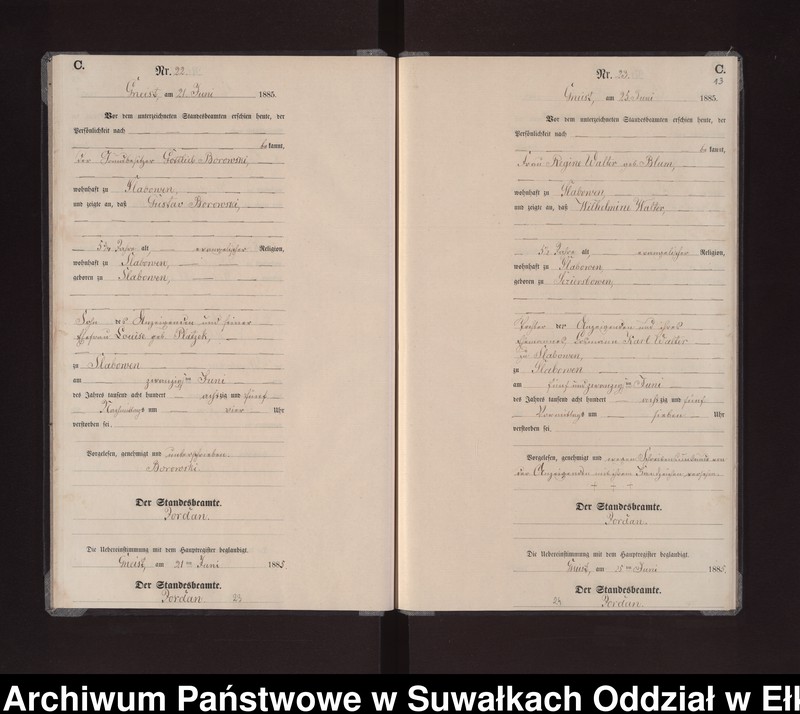 C.
Nr. 22
Gneist, am 21 Juni 1885.
Vor dem unterzeichneten Standesbeamten erschien heute, der
Persönlichkeit nach
be kannt,
der Grundbesitzer Gottlieb Borowski,
wohnhaft zu Slabowen,
und zeigte an, daß Gustav Borowski,
5 3/4 Jahre alt evangelischer Religion,
wohnhaft zu Slabowen,
geboren zu Slabowen,
Sohn des Anzeigenden und seiner
Ehefrau Louise geb.
zu Slabowen
am zwanzigten Juni
des Jahres tausend acht hundert achtzig und fünf
Nachmittags um vier Uhr
verstorben sei.
Vorgelesen, genehmigt und unterschrieben
Borowski
Der Standesbeamte.
Jordan.
Die Uebereinstimmung mit dem Hauptregister beglaubigt.
Gneist, am 21 ten Juni 1885
Der Standesbeamte.
Jordan
23
C.
13
Nr. 23
Gneist, am 25 Juni 1885.
Vor dem unterzeichneten Standesbeamten erschien heute, der
Persönlichkeit nach
be kannt,
Frau Regine Walter geb Blum,
wohnhaft zu Slabowen,
und zeigte an, daß Wilhelmine Walter,
Jahre alt, evangelischer Religion,
wohnhaft zu Slabowen,
geboren zu
Tochter der Anzeigenden und ihres
Ehemannes, Losmann Karl Walter
zu Slabowen,
zu Slabowen
am fünfundzwanzigten Juni
des Jahres tausend acht hundert achtzig und fünf
Vormittags um sieben Uhr
verstorben sei.
Vorgelesen, genehmigt und wegen Schreibensunkunde von
der Anzeigenden mit ihrem Handzeichen versehen
+ + +
Der Standesbeamte.
Jordan
Die Uebereinstimmung mit dem Hauptregister beglaubigt.
Gneist, am 25 ten Juni 1885.
Der Standesbeamte.
Jordan.
Archiwum Państwowe w Suwałkach Oddział w Ełk